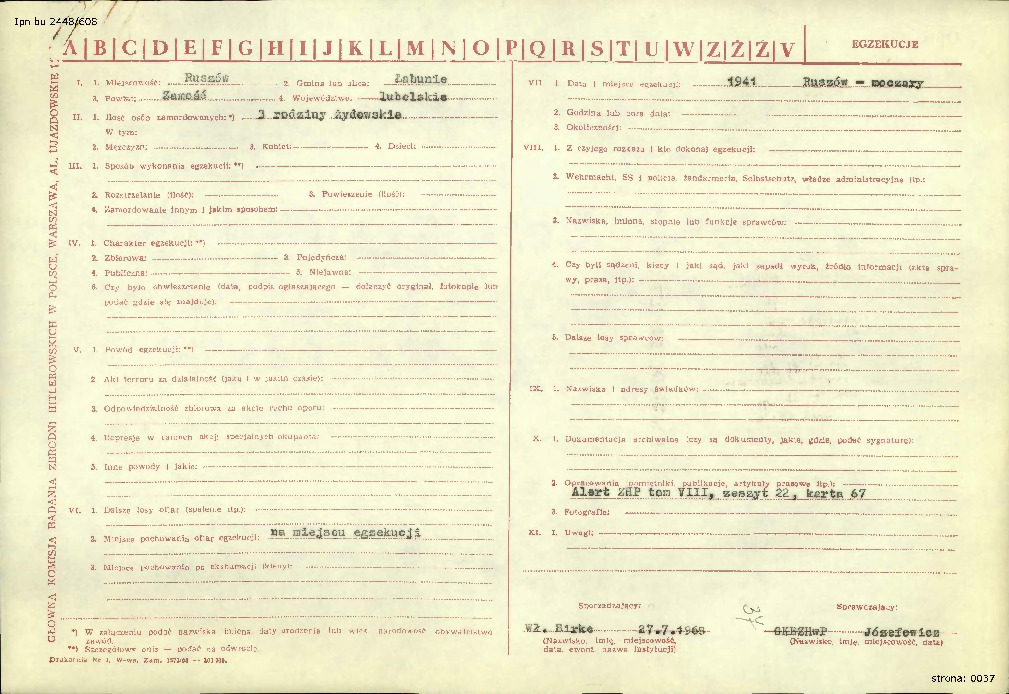 Ipn bu 2448/608
A|B|C|D|E|F|G|H|I|J|K|L|M|N|O|P|Q|R|S|T|U|W|Z|Ż|Ź|V
EGZEKUCJE
GŁÓWNA KOMISJA BADANIA ZBRODNI HITLEROWSKICH W POLSCE, WARSZAWA, AL. UJAZDOWSKIE
I. 1. Miejscowość: Ruszów 2. Gmina lub ulica: Łabunie
3. Powiat: Zamość 4. Województwo: lubelskie
II. 1. Ilość osób zamordowanych: *) 3 rodziny żydowskie
W tym:
2. Mężczyzn: 3. Kobiet: 4. Dzieci:
III. 1. Sposób wykonania egzekucji: **)
2. Rozstrzelanie (ilość): 3. Powieszenie (ilość):
4. Zamordowanie innym i jakim sposobem:
IV. 1. Charakter egzekucji: **)
2. Zbiorowa: 3. Pojedyńcza:
4. Publiczna: 5. Niejawna:
6. Czy było obwieszczenie (data, podpis ogłaszającego — dołączyć oryginał, fotokopię lub
podać gdzie się znajduje):
V. 1. Powód egzekucji: **)
2. Akt terroru za działalność (jaką i w jakim czasie):
3. Odpowiedzialność zbiorowa za akcje ruchu oporu:
4. Represje w ramach akcji specjalnych okupanta:
5. Inne powody i jakie:
VI. 1. Dalsze losy ofiar (spalenie itp.):
2. Miejsce pochowania ofiar egzekucji: na miejscu egzekucji
3. Miejsce pochowania po ekshumacji
*) W załączeniu podać nazwiska imiona, daty urodzenia lub wiek, narodowość obywatelstwo
zawód.
**) Szczegółowy opis — podać na odwrocie.
Drukarnia Nr 1, W-wa. Zam.
VII. 1. Data i miejsce egzekucji: 1941 Ruszów - moczary
2. Godzina lub pora dnia:
3. Okoliczności:
VIII. 1. Z czyjego rozkazu i kto dokonał egzekucji:
2. Wehrmacht, SS i policja, żandarmeria, Selbstschutz, władze administracyjne itp.:
3. Nazwiska, imiona, stopnie lub funkcje sprawców:
4. Czy byli sądzeni, kiedy i jaki sąd, jaki zapadł wyrok, źródło informacji (akta spra-
wy, prasa, itp.):
5. Dalsze losy sprawców:
IX. 1. Nazwiska i adresy świadków:
X. 1. Dokumentacja archiwalna (czy są dokumenty, jakie, gdzie, podać sygnaturę):
2. Opracowania, pamiętniki, publikacje, artykuły prasowe itp.:
Alert ZHP tom VIII, zeszyt 22, karta 67
3. Fotografie:
XI. 1. Uwagi:
Sporządzający: Sprawdzający:
Wł. Birke 27.7.1968 GKBZHwP Józefowicz
(Nazwisko, imię, miejscowość, (Nazwisko, imię, miejscowość, data)
data, ewent. nazwa instytucji)
strona: 0037